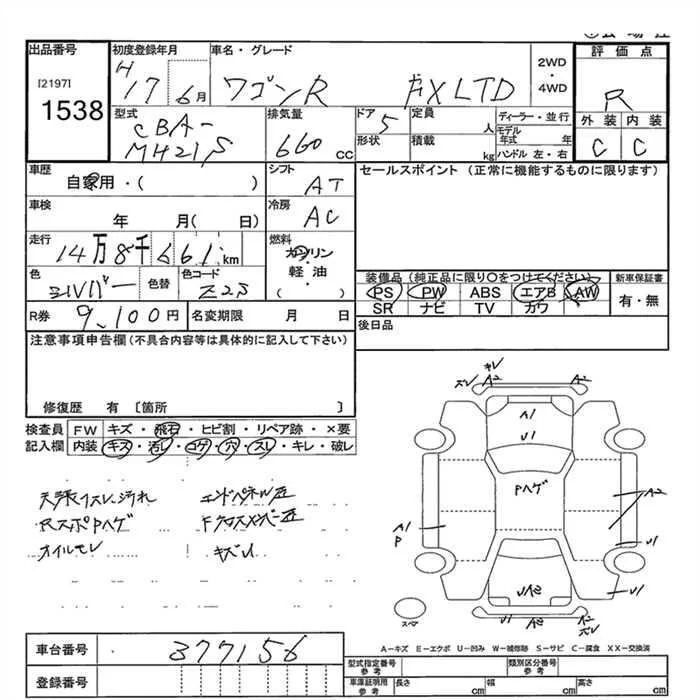 出品番号
[2197]
1538
初度登録年月
H 17年 6月
車名・グレード
ワゴンR FX LTD
2WD
・
4WD
評価点
R
外装 内装
C C
型式
CBA-
MH21S
排気量
660 CC
ドア
5
形状
定員
人
積載
kg
ディーラー・並行
モデル
年式 年
ハンドル 左・右
車歴
自家用・( )
シフト
AT
セールスポイント (正常に機能するものに限ります)
車検
年 月( 日)
冷房
AC
走行
14万8千661km
燃料
ガソリン
軽油・
( )
色
シルバー
色替
色コード
Z2S
装備品 (純正品に限り○をつけてください)
PS PW ABS エアB AW
SR ナビ TV カワ
新車保証書
有・無
R券 9,100円
名変期限 月 日
後日品
注意事項申告欄(不具合内容等は具体的に記入して下さい)
修復歴 有 〔箇所 〕
検査員
記入欄
FW キズ・飛石・ヒビ割・リペア跡・×要
内装 キズ・汚レ・コゲ・穴・スレ・キレ・破レ
天張リスレ、汚れ
RスポPハゲ
オイルモレ
エンドパネル歪
Fクロスメンバー歪
キズU
キレ
スレ A2 A2
A1
U1
Pハゲ
A2
A1
P
U1
U1
UA2
U1 A2 A2
スレ
スペア
A－キズ E－エクボ U－凹み W－補修跡 S－サビ C－腐食 XX－交換済
車台番号
377156
登録番号
型式指定番号
参考
類別区分番号
参考
車庫証明用
参考
長さ cm
幅 cm
高さ cm